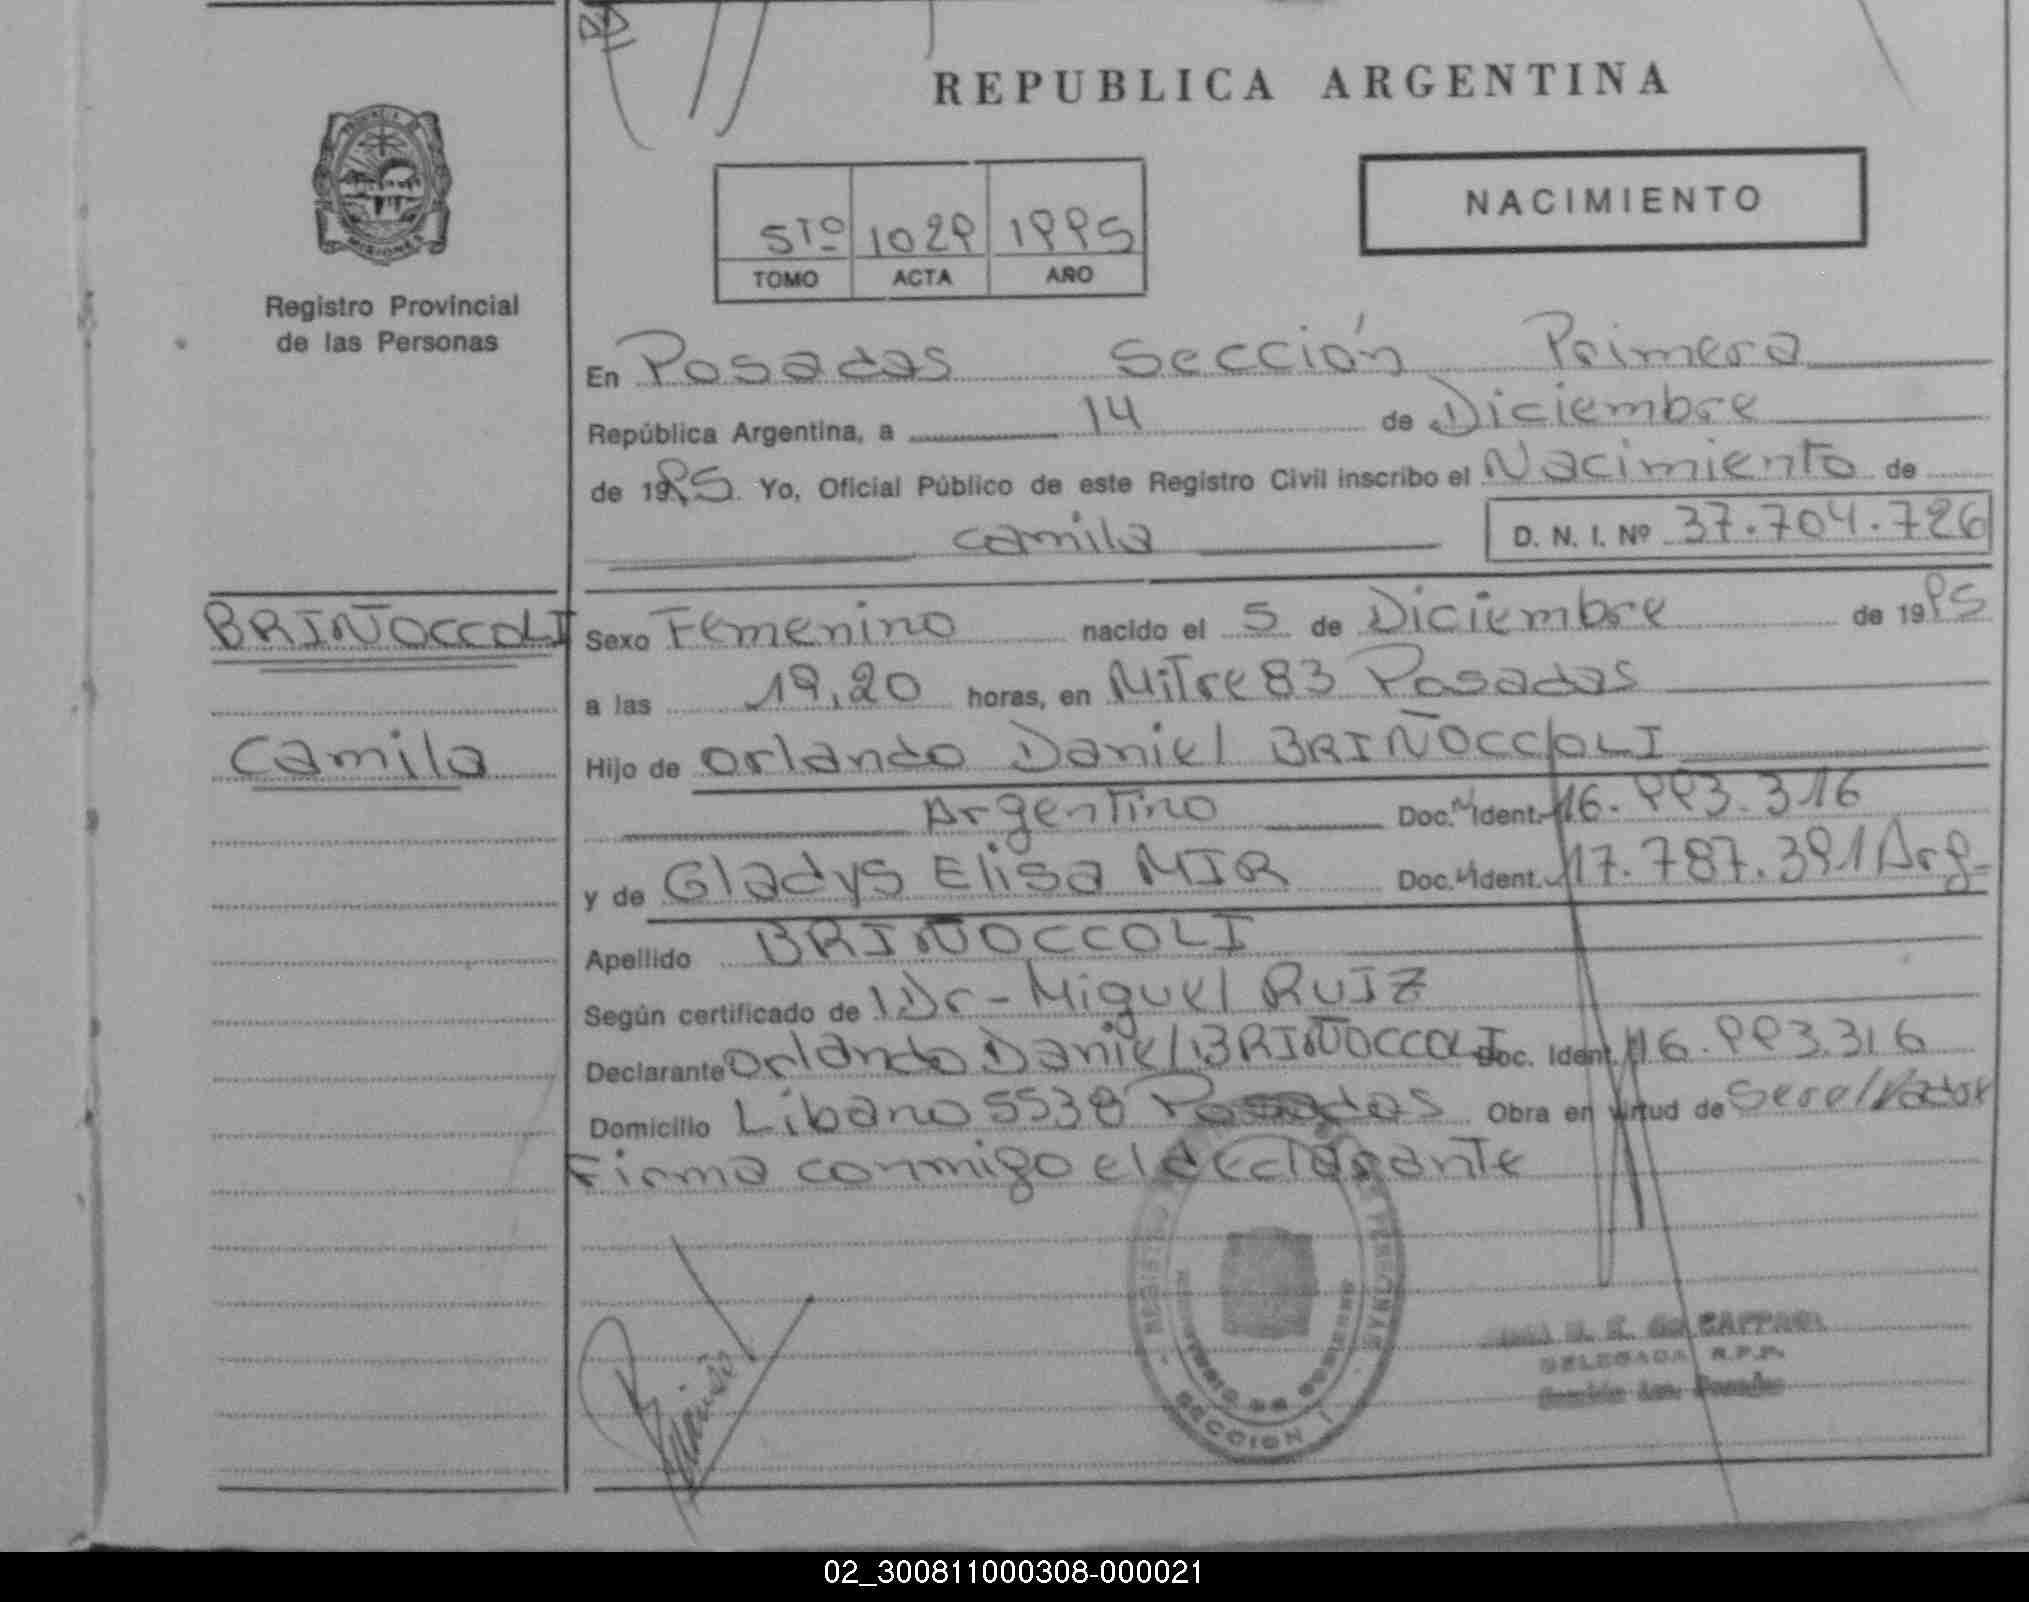 REPUBLICA ARGENTINA
NACIMIENTO
5to 1029 1995
TOMO ACTA AÑO
Registro Provincial
de las Personas
En Posadas Sección Primera
República Argentina, a 14 de Diciembre
de 1995. Yo, Oficial Público de este Registro Civil inscribo el Nacimiento de
Camila D. N. I. Nº 37.704.726
BRIÑOCCOLI
Camila
Sexo Femenino nacido el 5 de Diciembre de 1995
a las 19,20 horas, en Mitre 83 Posadas
Hijo de Orlando Daniel BRIÑOCCOLI
Argentino Doc. Ident. 16.993.316
y de Gladys Elisa MIR Doc. Ident. 17.787.391 Arg-
Apellido BRIÑOCCOLI
Según certificado de Dr- Miguel RUIZ
Declarante Orlando Daniel BRIÑOCCOLI Doc. Ident. 16.993.316
Domicilio Libano 5538 Posadas Obra en virtud de
Firma conmigo el declarante
SECCION I
DELEGADA R.P.P.
02_300811000308-000021